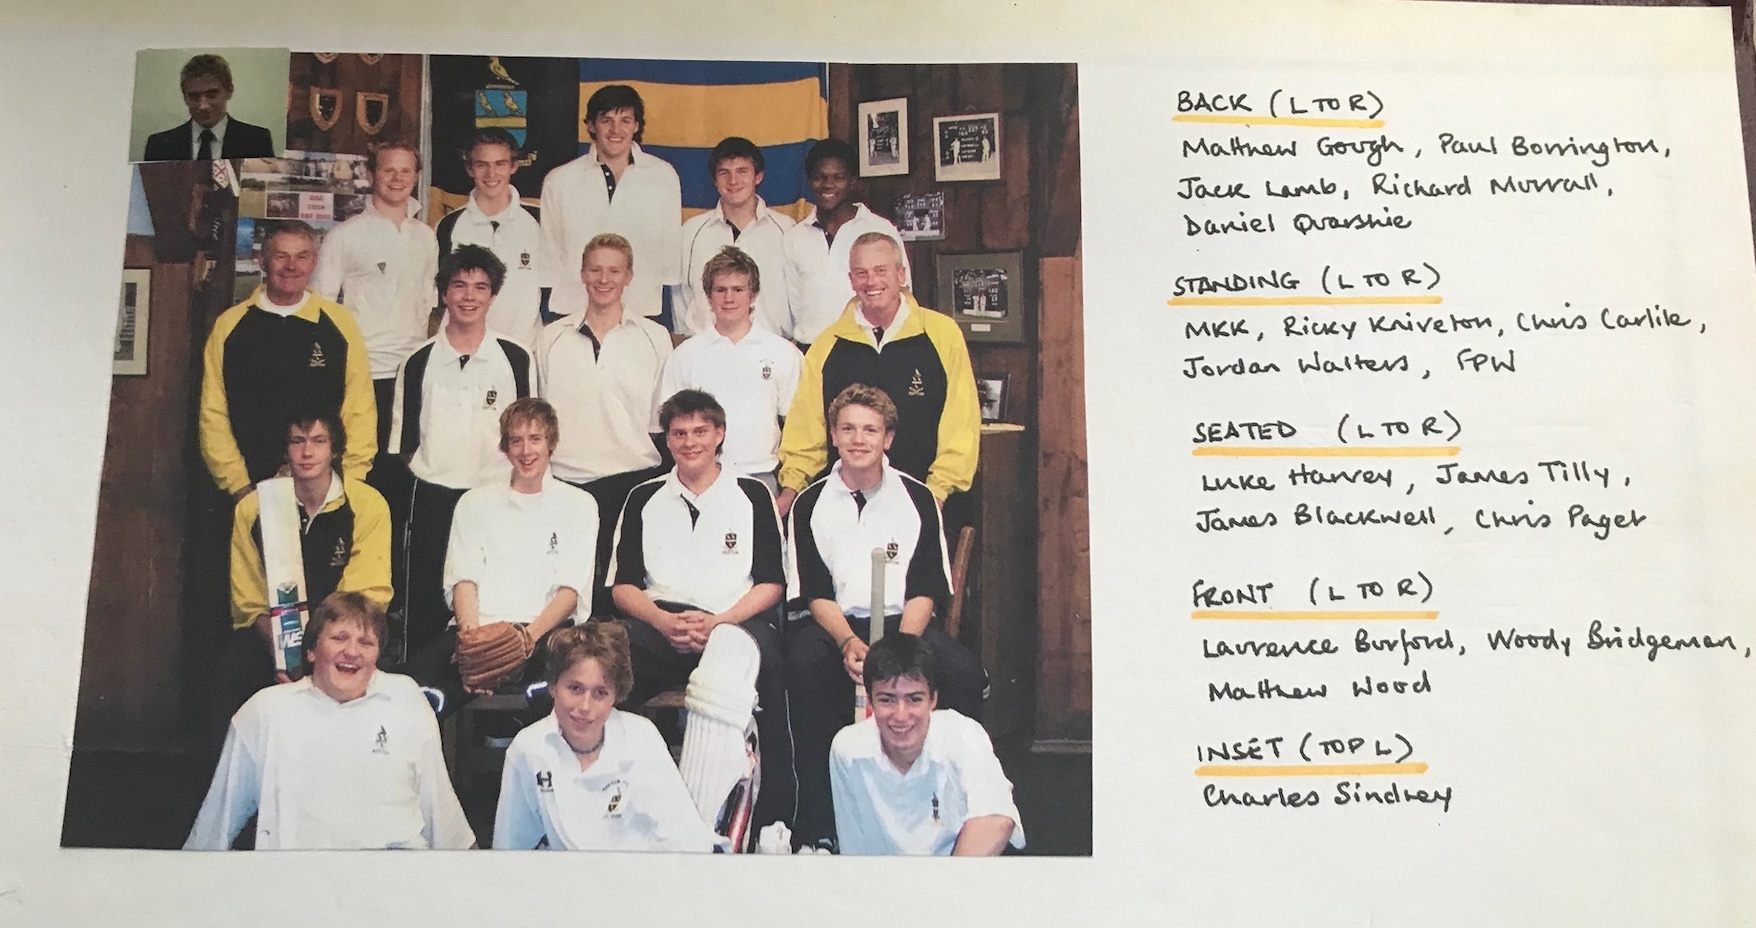 BACK (L TO R)
Matthew Gough, Paul Borrington,
Jack Lamb, Richard Murrall,
Daniel Quarshie
STANDING (L TO R)
MKK, Ricky Kniveton, Chris Carlile,
Jordan Walters, FPW
SEATED (L TO R)
Luke Harvey, James Tilly,
James Blackwell, Chris Paget
FRONT (L TO R)
Laurence Burford, Woody Bridgeman,
Matthew Wood
INSET (TOP L)
Charles Sindrey